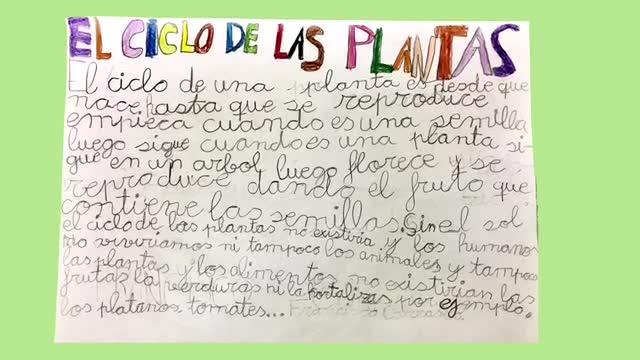 EL CICLO DE LAS PLANTAS
El ciclo de una planta es desde que
nace hasta que se reproduce
empieca cuando es una semilla
luego sigue cuando es una planta si-
gue en un arbol luego florece y se
reproduce dando el fruto que
contiene las semillas. Sin el sol
el ciclo de las plantas no existiria y los humano
no viviriamos ni tampoco los animales y tampoco
las plantas y los alimentos no existirian las
frutas la verduras ni la hortalizas por ejemplo.
los platanos tomates...